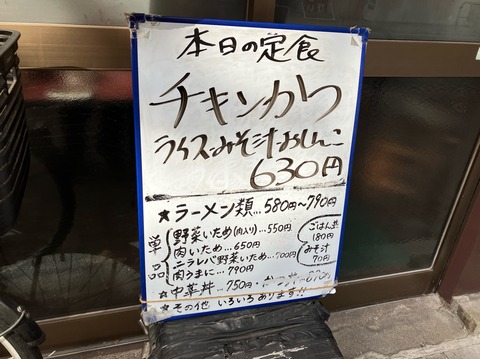 本日の定食
チキンかつ
ライス・みそ汁・おしんこ
630円
★ラーメン類…580円〜790円
単品
野菜いため(肉入り)…550円
肉いため…650円
ニラレバ野菜いため…700円
肉うまに…790円
ごはん並
180円
みそ汁
70円
☆中華丼…750円・
★その他いろいろあります!!